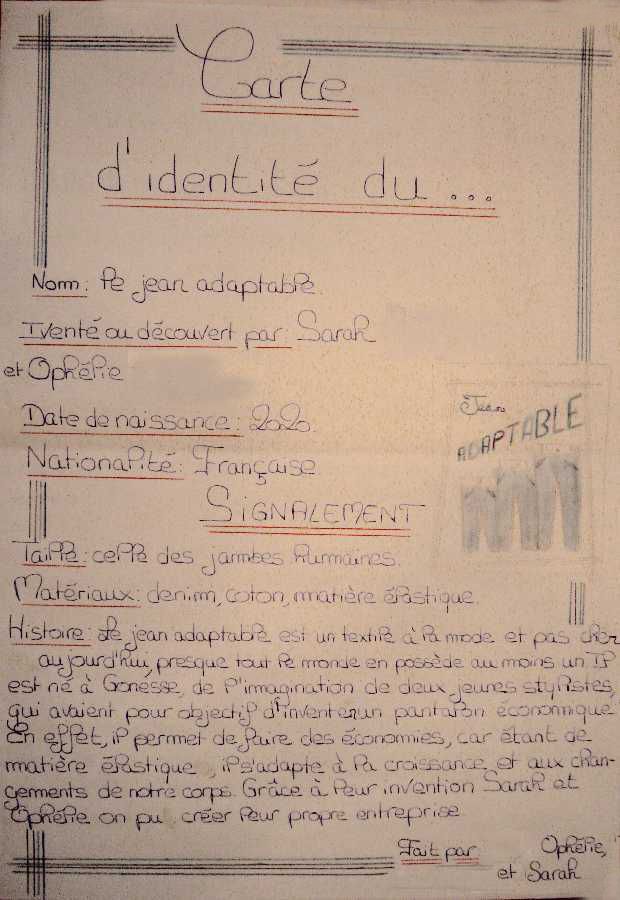 Carte
d'identité du ...
Nom : Le jean adaptable.
Iventé ou découvert par : Sarah
et Ophélie
Date de naissance : 2020.
Nationalité : Française
Jean
ADAPTABLE
SIGNALEMENT
Taille : celle des jambes humaines.
Matériaux : denim, coton, matière élastique.
Histoire : Le jean adaptable est un textile à la mode et pas cher
aujourd'hui, presque tout le monde en possède au moins un Il
est né à Gonesse, de l'imagination de deux jeunes stylistes,
qui avaient pour objectif d'inventer un pantalon économique
En effet, il permet de faire des économies, car étant de
matière élastique, il s'adapte à la croissance et aux chan-
gements de notre corps. Grâce à leur invention Sarah et
Ophélie on pu créer leur propre entreprise
Fait par Ophélie,
et Sarah